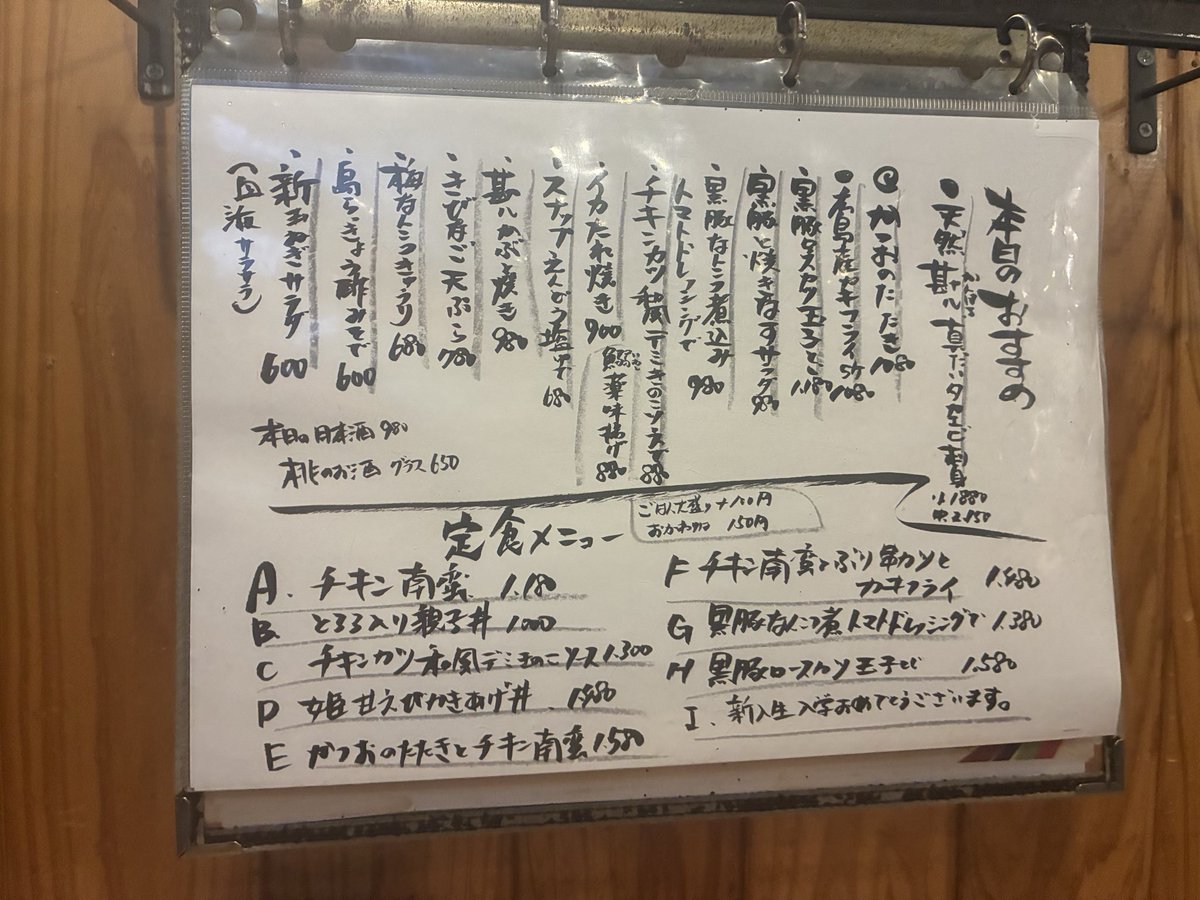 本日のおすすめ
・天然甚八真だいタタエビ刺身 小1880 中2.850
かつおのたたき 1080
・本島産カキフライ5ケ 1080
黒豚ロースカツ玉子とじ 1.180
黒豚と焼きなすサラダ 980
・黒豚なんこつ煮込み トマトドレッシングで 980
・チキンカツ和風デミきのこソースで 880
・イカたれ焼き 900
鰯いわし薬味揚げ 880
・スナップえんどう塩ゆで 680
・甚八かぶと焼き 980
・きびなご天ぷら 780
・梅なんこつきゅうり 680
・島らっきょう酢みそで 600
・新玉ねぎサラダ 600
(血液サラサラ)
本日の日本酒 980
桃のお酒 グラス 650
定食メニュー
ごはん大盛り+100円
おかわりは 150円
A. チキン南蛮 1.180
B とろろ入り親子丼 1000
C チキンカツ和風デミきのこソース 1.300
D 姫甘えびかきあげ丼 1.480
E かつおのたたきとチキン南蛮 1.580
F チキン南蛮とぶり串カツと
カキフライ 1.480
G 黒豚なんこつ煮トマトドレッシングで 1.380
H 黒豚ロースカツ玉子とじ 1.580
I. 新入生入学おめでとうございます。